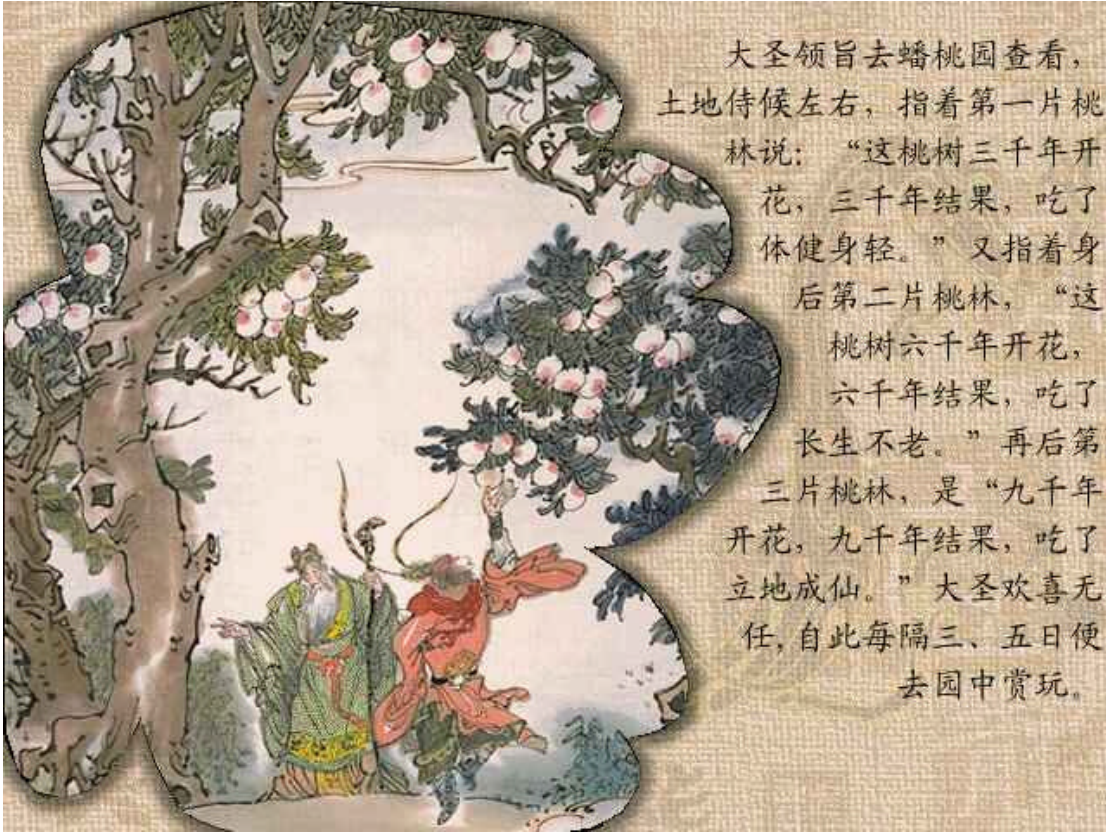 大圣领旨去蟠桃园查看，
土地侍候左右，指着第一片桃
林说：“这桃树三千年开
花，三千年结果，吃了
体健身轻。”又指着身
后第二片桃林，“这
桃树六千年开花，
六千年结果，吃了
长生不老。”再后第
三片桃林，是“九千年
开花，九千年结果，吃了
立地成仙。”大圣欢喜无
任，自此每隔三、五日便
去园中赏玩。